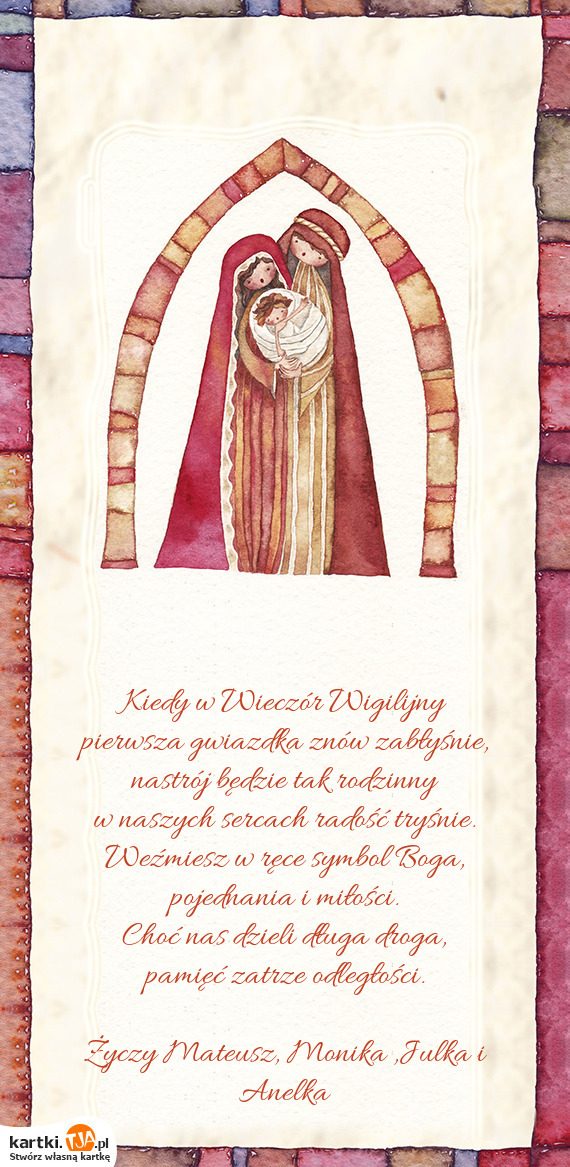 Kiedy w Wieczór Wigilijny
pierwsza gwiazdka znów zabłyśnie,
nastrój będzie tak rodzinny
w naszych sercach radość tryśnie.
Weźmiesz w ręce symbol Boga,
pojednania i miłości.
Choć nas dzieli długa droga,
pamięć zatrze odległości.
Życzy Mateusz, Monika ,Julka i
Anelka
kartki.TJA.pl
Stwórz własną kartkę